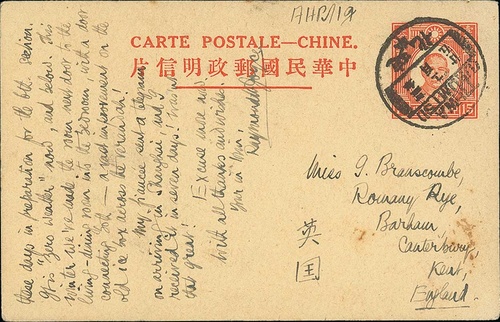 AHP/119
CARTE POSTALE—CHINE.
片信明政郵國民華中
15
Miss G. Branscombe,
Romany Rye,
Barham,
Canterbury,
Kent,
England.
英
国
these days in preparation for the 6th section.
It is "zero weather" now, and below. This
winter we've made the room next door to the
living-dining room into the bedroom with a door
connecting both — a vast improvement on the
old ice box across the verandah!
My fiancée sent a telegram
on arriving in Shanghai, and I
received it in seven days! Wasn't
that great!
Excuse once now.
With all thanks and wishes.
Yours in Him,
Raymond